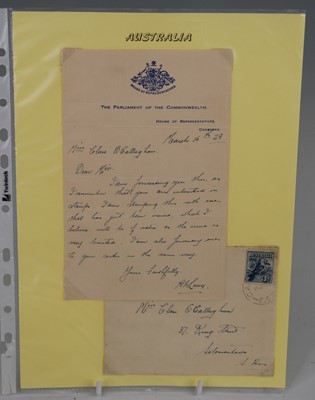 AUSTRALIA
HOUSE OF REPRESENTATIVES
THE PARLIAMENT OF THE COMMONWEALTH.
HOUSE OF REPRESENTATIVES,
CANBERRA.
March 16th 29
Miss Clare O'Callaghan
Dear Miss
I am forwarding you this, as
I remember that you are interested in
stamps. I am stamping this with one
that has just been issued, which I
believe will be of value as the issue is
very limited. I am also forwarding one
to your in the same way
Yours faithfully
Miss Clare O'Callaghan
37 King Street